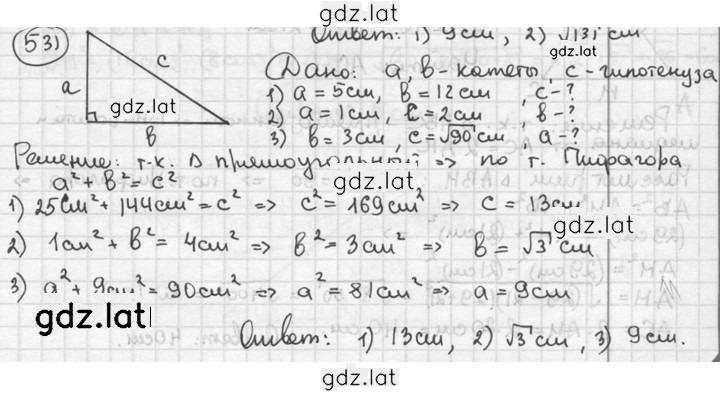 gdz.lat
Ответ: 1) 9см, 2) √131 см
531
a
c
b
gdz.lat
Дано: a, b - катеты, c - гипотенуза
1) a = 5см, b = 12см, c - ?
2) a = 1см, c = 2см, b - ?
3) b = 3см, c = √90 см, a - ?
gdz.lat
Решение: т.к. Δ прямоугольный => по т. Пифагора
a² + b² = c²
gdz.lat
1) 25см² + 144см² = c² => c² = 169см² => c = 13см
gdz.lat
2) 1см² + b² = 4см² => b² = 3см² => b = √3 см
3) a² + 9см² = 90см² => a² = 81см² => a = 9см
gdz.lat
Ответ: 1) 13см, 2) √3 см, 3) 9см.
gdz.lat